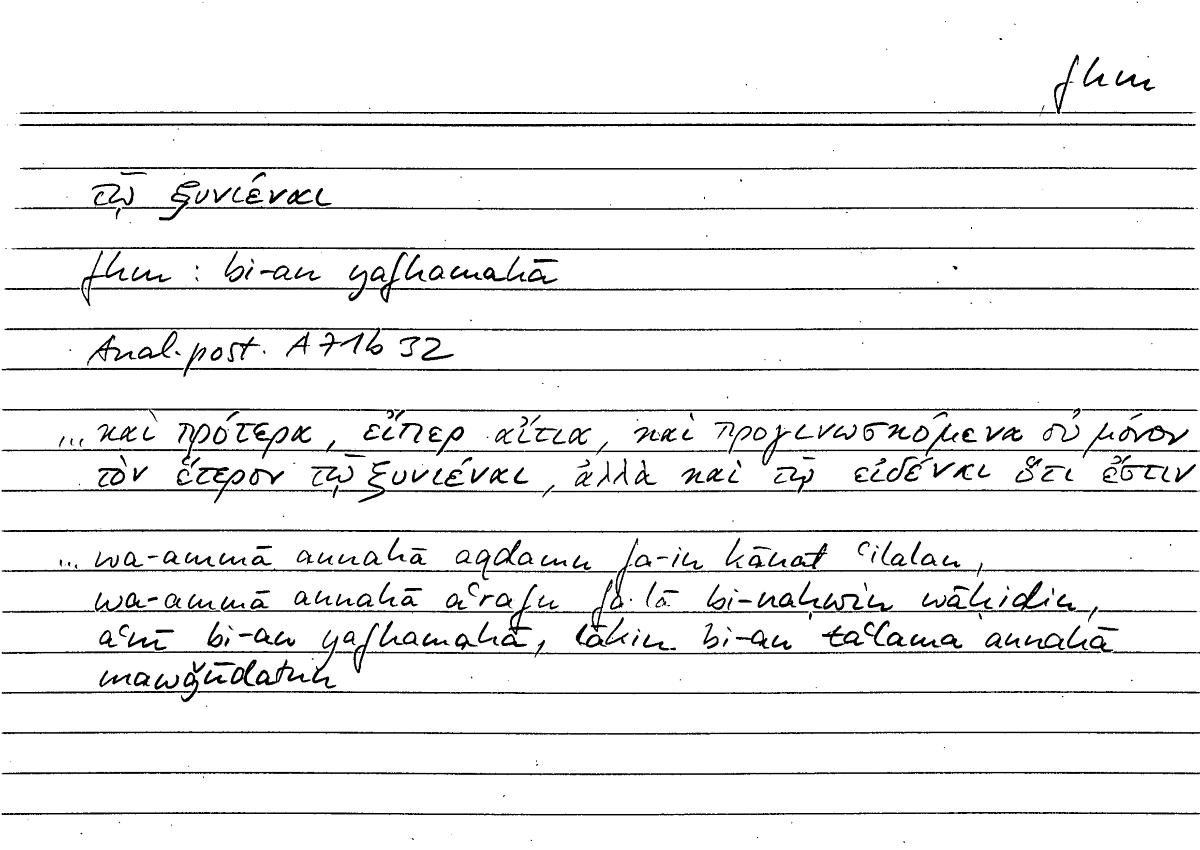 fhm
τῷ ξυνιέναι
fhm : bi-an yafhamahā
Anal. post. A 71b 32
... καὶ πρότερα, εἴπερ αἴτια, καὶ προγινωσκόμενα οὐ μόνον
τὸν ἕτερον τῷ ξυνιέναι, ἀλλὰ καὶ τῷ εἰδέναι ὅτι ἔστιν
... wa-ammā annahā aqdamu fa-in kānat ʿilalan,
wa-ammā annahā aʿrafu fa-lā bi-naḥwin wāḥidin,
aʿnī bi-an yafhamahā, lākin bi-an taʿlama annahā
mawǧūdatun